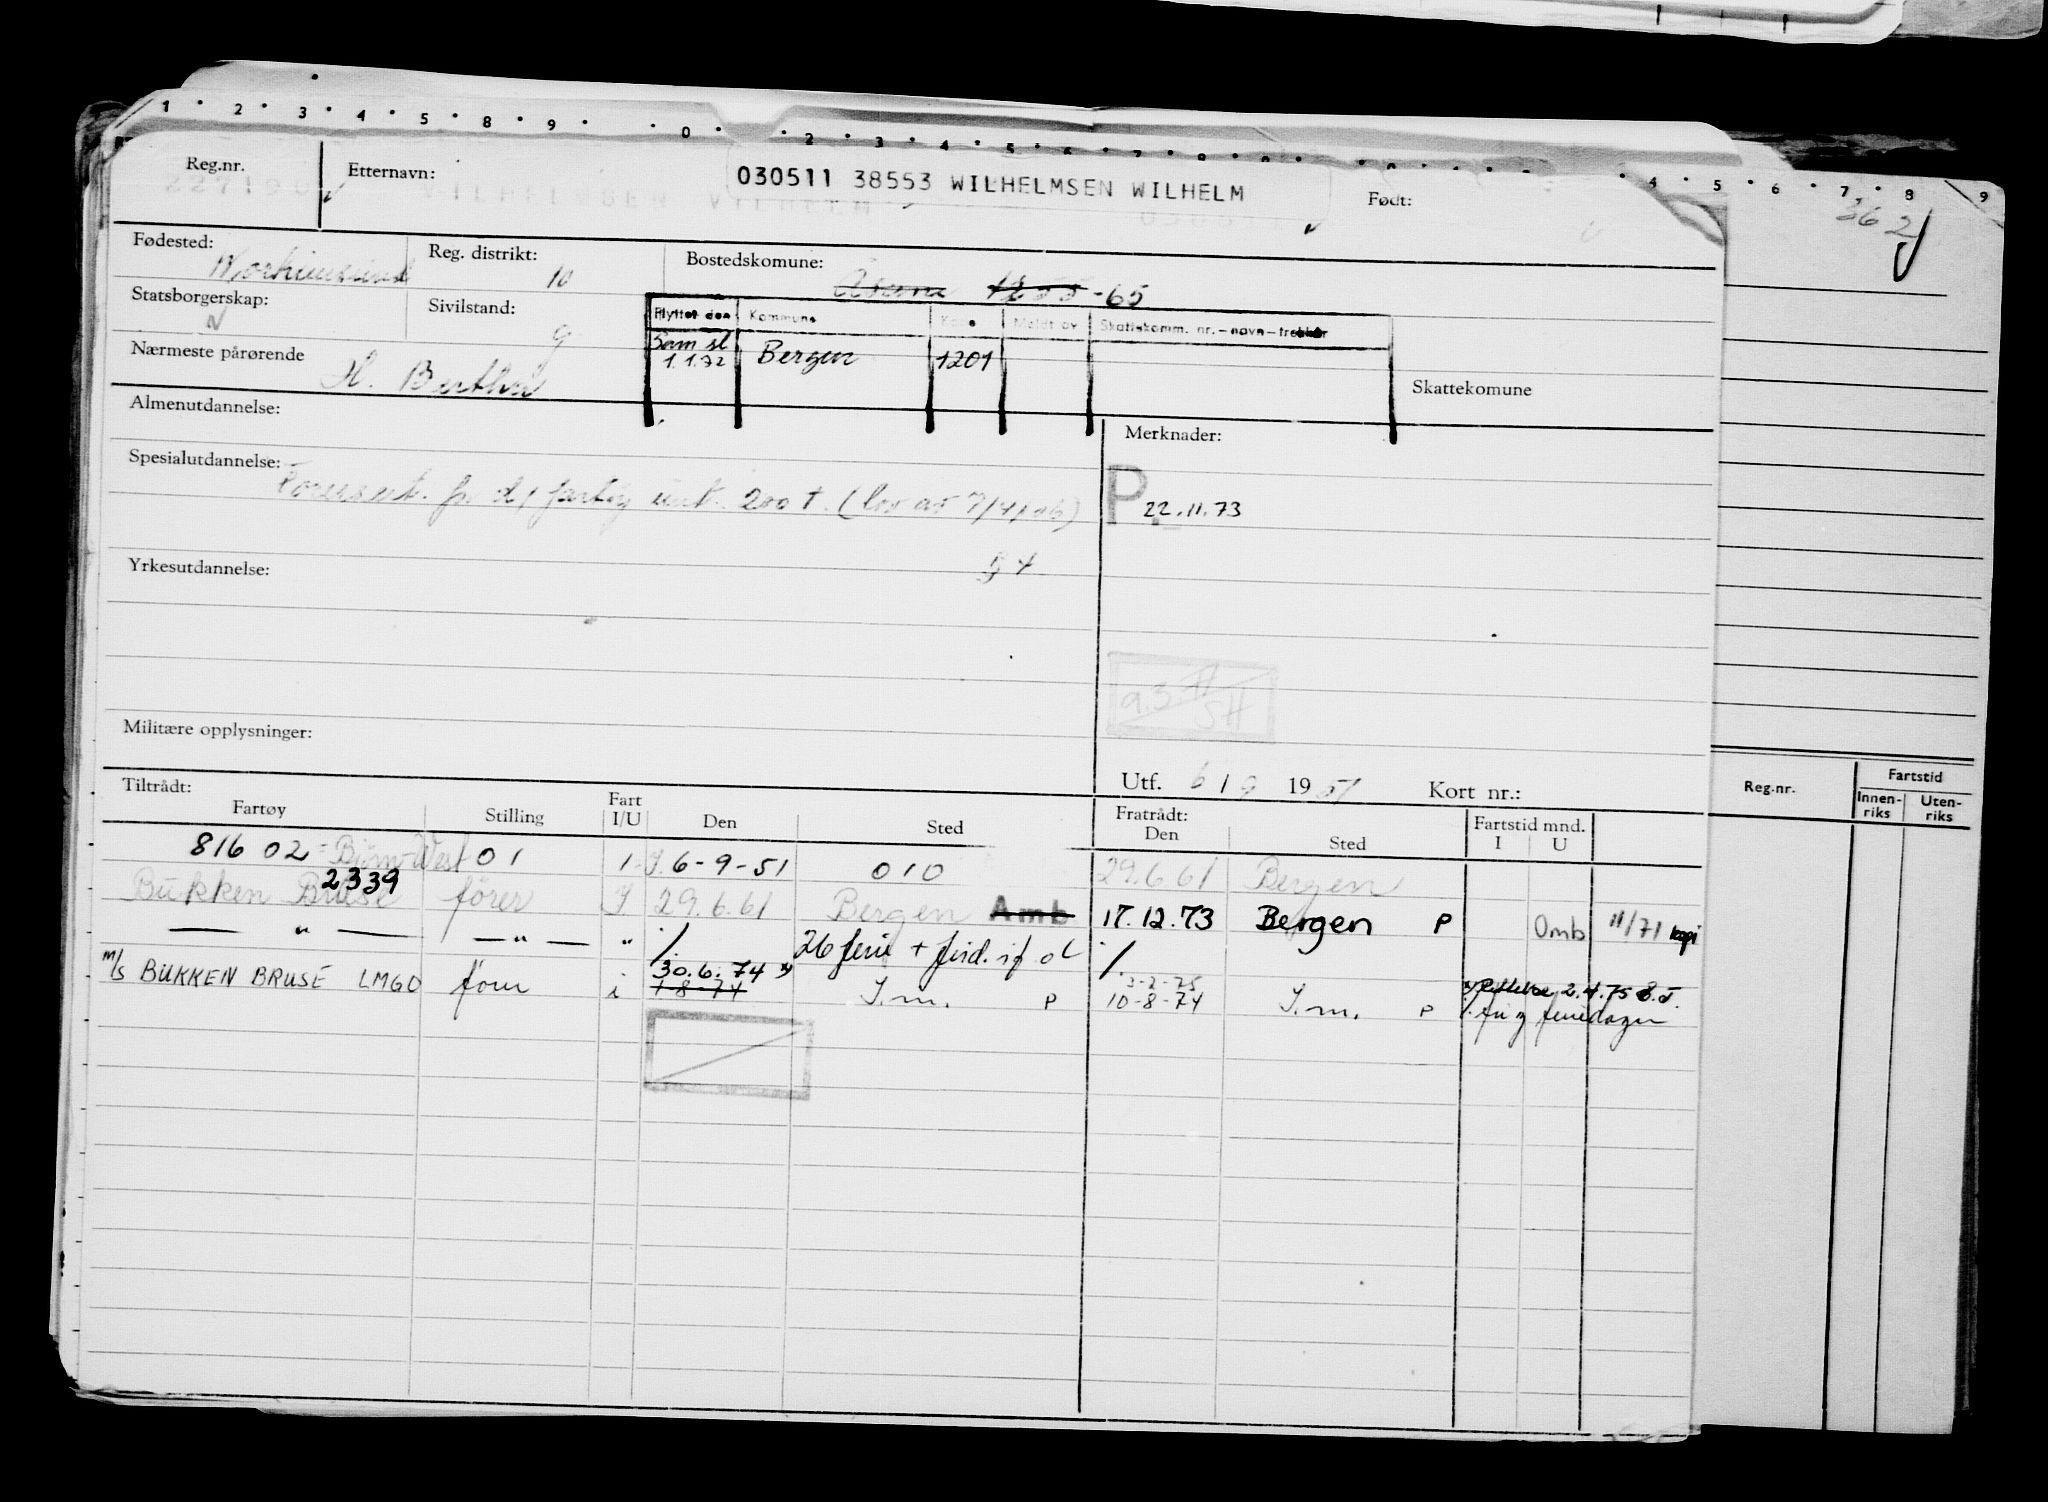 1 2 3 4 5 8 9 0 2 3 4 5 6 7 8 9
4 5 6 7 8 9
362
Reg.nr. Etternavn: 030511 38553 WILHELMSEN WILHELM Født:
VILHELMSEN VILHELM
Fødested: Reg. distrikt: 10 Bostedskomune:
Norheimsund Åsane 1255 -65
Statsborgerskap: N Sivilstand: g
Flyttet den Kommune Kode Meldt av Skattekomm. nr. - navn - trekker
Sam sl 1.1.72 Bergen 1201
Nærmeste pårørende H. Skattekomune
Almenutdannelse: Merknader:
Spesialutdannelse: P 22.11.73
fartøy 200 t. (lov av
§ 4
Yrkesutdannelse:
Militære opplysninger:
Utf. 6/9 1951 Kort nr.:
Tiltrådt: Fratrådt: Fartstid mnd.
Fartøy Stilling Fart I/U Den Sted Den Sted I U
Reg.nr. Fartstid Innen-riks Uten-riks
816 02 = Bjørn-West 01 1 6-9-51 010 29.6.61 Bergen
Bukken Bruse 2339 fører I 29.6.61 Bergen Amb 17.12.73 Bergen P Omb 11/71 kopi
— " — — " — " ./. 26 ferie + ./.
m/s BUKKEN BRUSE LMGO fører i 30.6.74 1-8-74 I.m. P 3-2-75 10-8-74 I.m. P 2.4.75
feriedager